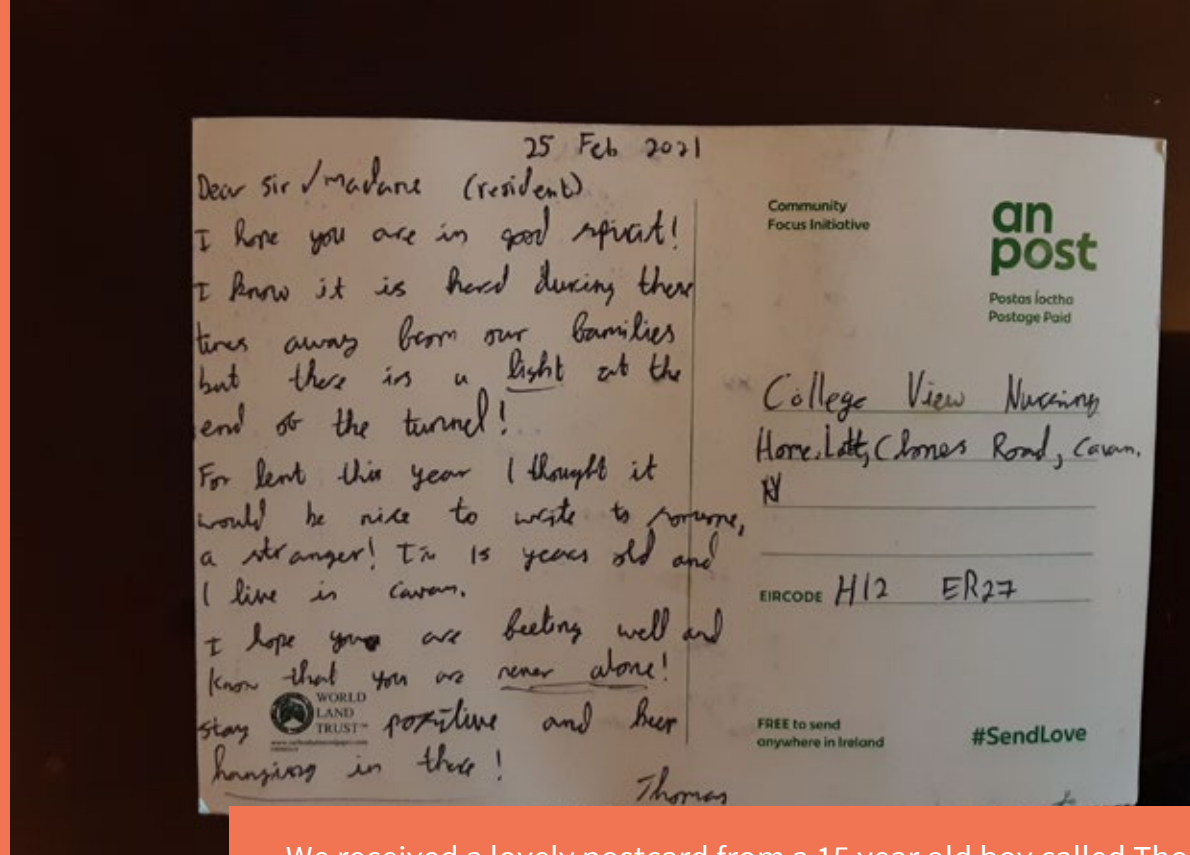 25 Feb 2021
Dear Sir / madame (resident)
I hope you are in good spirit!
I know it is hard during these
times away from our families
but there is a light at the
end of the tunnel!
For lent this year I thought it
would be nice to write to someone,
a stranger! I'm 15 years old and
I live in Cavan.
I hope you are feeling well and
know that you are never alone!
stay positive and keep
hanging in there!
Thomas
WORLD
LAND
TRUST™
Community
Focus Initiative
an
post
Postas íoctha
Postage Paid
College View Nursing
Home, Clones Road, Cavan.
EIRCODE H12 ER27
FREE to send
anywhere in Ireland
#SendLove
We received a lovely postcard from a 15 year old boy called